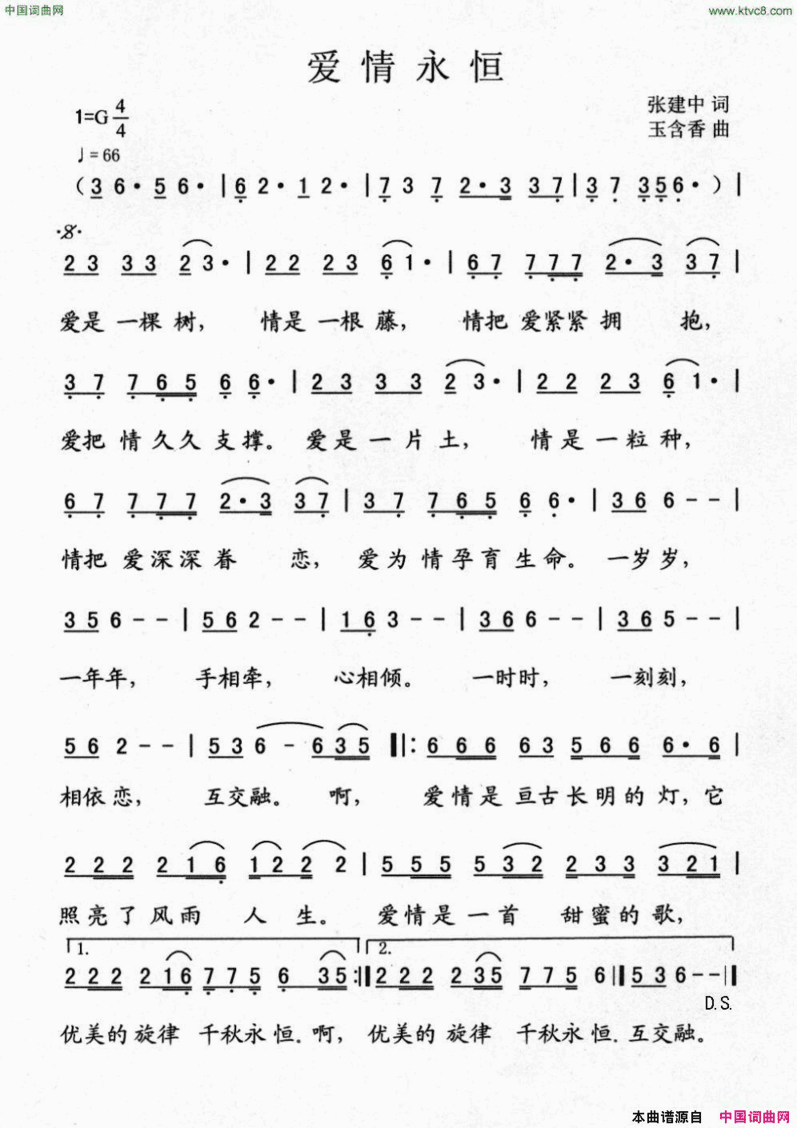 中国词曲网
www.ktvc8.com
爱情永恒
1=G 4/4
张建中 词
玉含香 曲
♩= 66
（3 6· 5 6· | 6 2· 1 2· | 7 3 7 2·3 3 7 | 3 7 3 5 6· ）|
2 3 3 3 2 3· | 2 2 2 3 6 1· | 6 7 7 7 7 2·3 3 7 |
爱是 一棵 树， 情是 一根 藤， 情把 爱紧紧 拥 抱，
3 7 7 6 5 6 6· | 2 3 3 3 2 3· | 2 2 2 3 6 1· |
爱把 情久久 支撑。 爱是 一片 土， 情是 一粒 种，
6 7 7 7 7 2·3 3 7 | 3 7 7 6 5 6 6· | 3 6 6 - - |
情把 爱深深 眷 恋， 爱为 情孕育 生命。 一岁岁，
3 5 6 - - | 5 6 2 - - | 1 6 3 - - | 3 6 6 - - | 3 6 5 - - |
一年年， 手相牵， 心相倾。 一时时， 一刻刻，
5 6 2 - - | 5 3 6 - 6 3 5 ‖: 6 6 6 6 3 5 6 6 6· 6 |
相依恋， 互交融。 啊， 爱情是 亘古长明的 灯，它
2 2 2 2 1 6 1 2 2 2 | 5 5 5 5 3 2 2 3 3 2 3 3 |
照亮了 风雨 人 生。 爱情是 一首 甜蜜的 歌，
1. 2.
2 2 2 2 1 6 7 7 5 6 3 5 :‖ 2 2 2 2 3 5 7 7 5 6 ‖ 5 3 6 - - ‖
D.S.
优美的 旋律 千秋永 恒．啊， 优美的 旋律 千秋永 恒．互交融。
本曲谱源自 中国词曲网